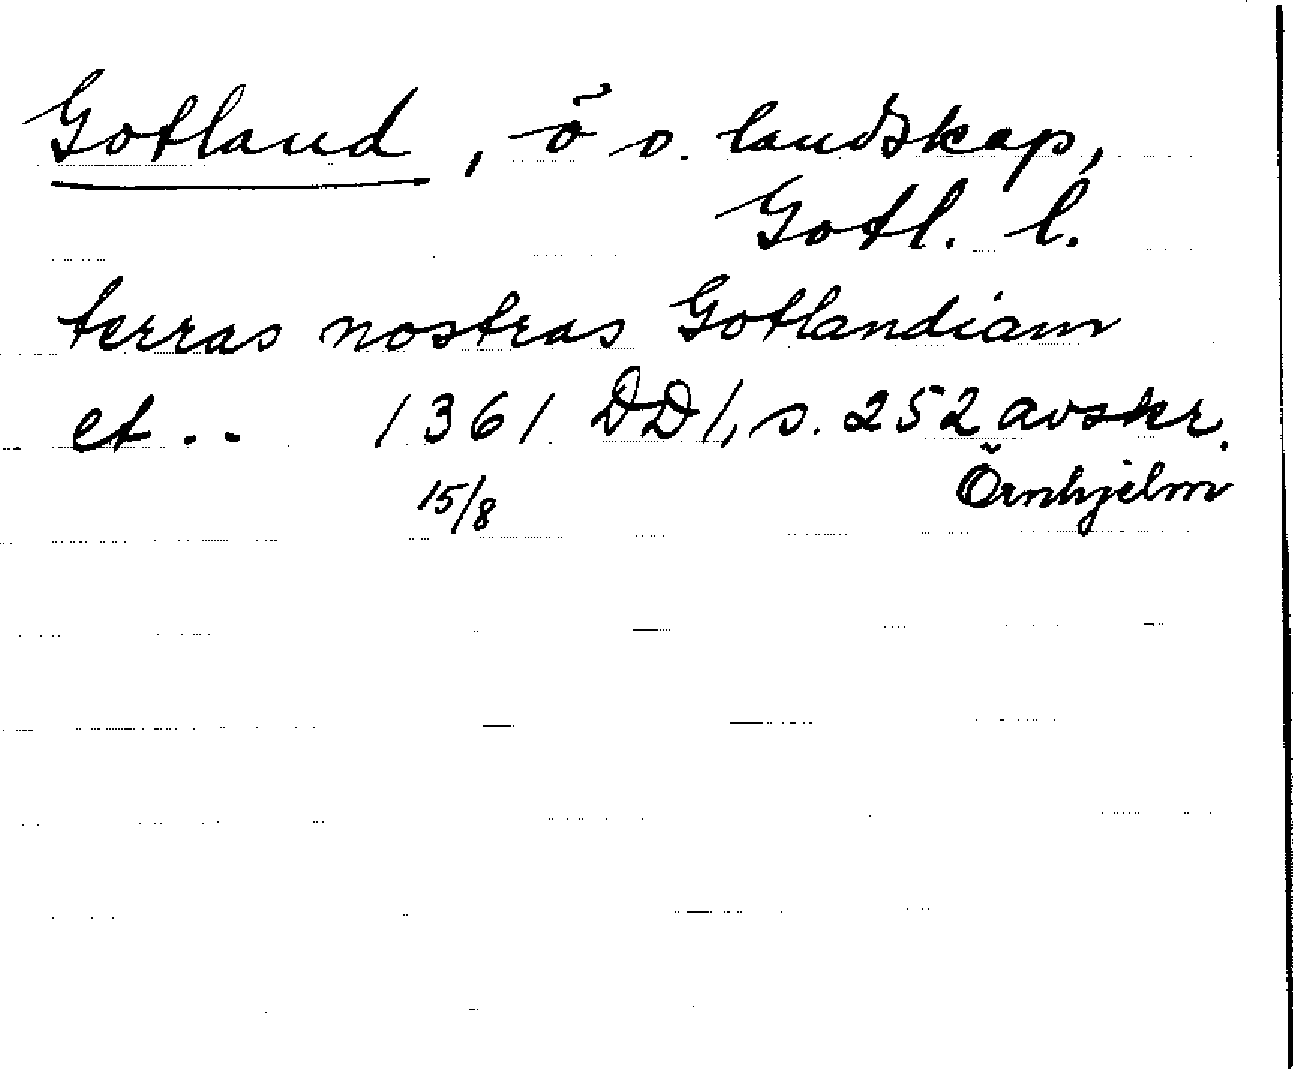 Gotland, ö o. landskap,
Gotl. l.
terras nostras Gotlandiam
et .. 1361 DD 1, s. 252 avskr.
15/8 Örnhjelm